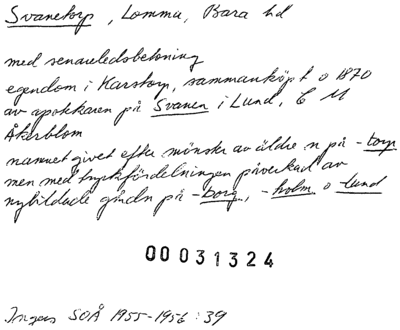 Svanetorp, Lomma, Bara hd
med senareledsbetoning
egendom i Karstorp, sammanköpt o 1870
av apotekaren på Svanen i Lund, C M
Åkerblom
namnet givet efter mönster av äldre n på -torp
men med tryckfördelningen påverkad av
nybildade gårdn på -borg, -holm o -lund
00031324
Ingers SOÅ 1955-1956:39